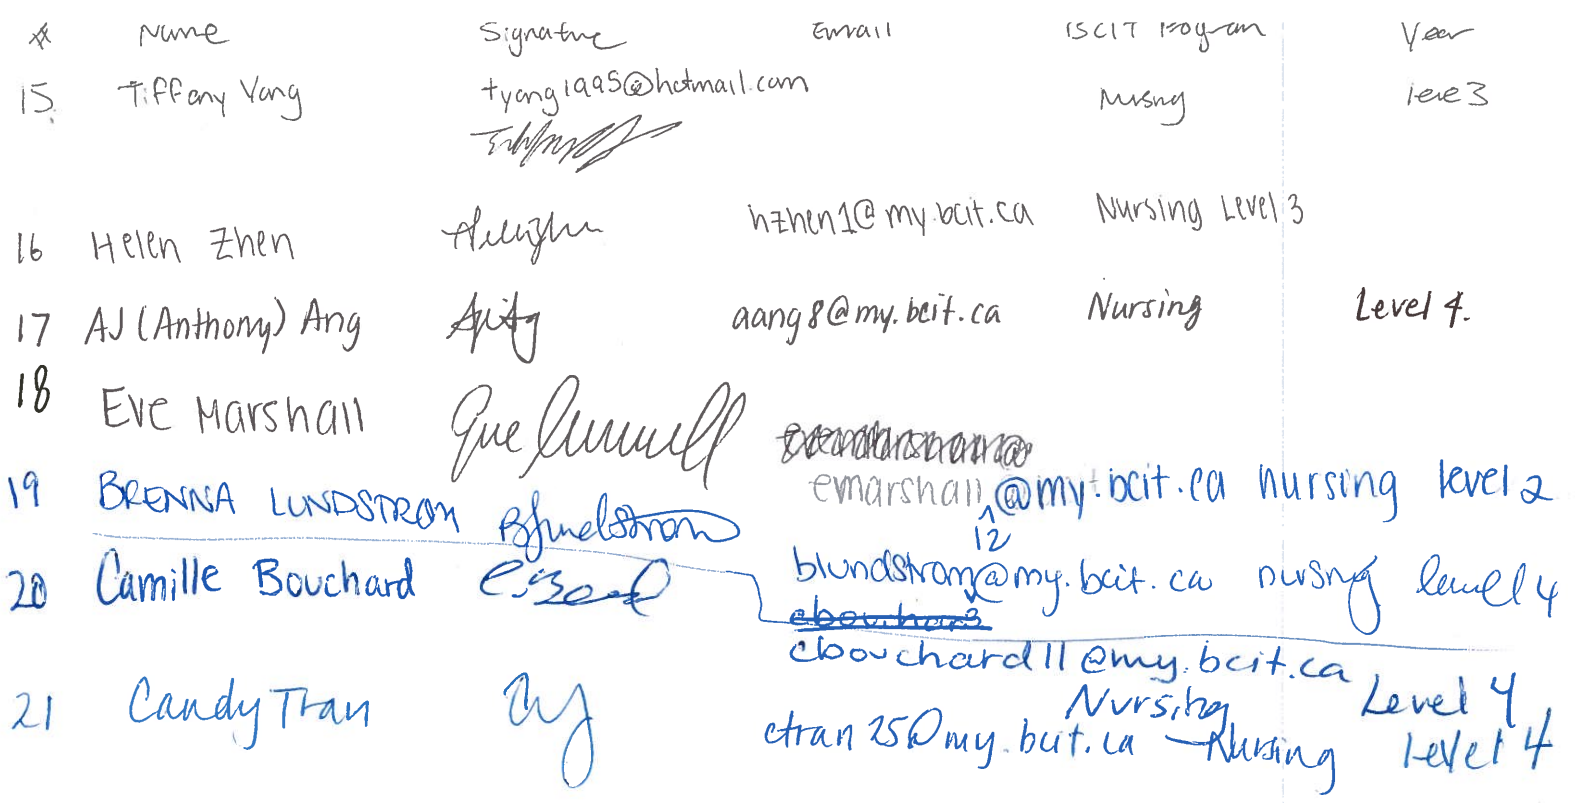 # Name Signature Email BCIT Program Year
15. Tiffany Yang tyang1995@hotmail.com Nursng level 3
16 Helen Zhen hzhen1@my.bcit.ca Nursing Level 3
17 AJ (Anthony) Ang aang8@my.bcit.ca Nursing Level 4.
18 Eve Marshall
emarshall12@my.bcit.ca nursing level 2
19 BRENNA LUNDSTROM
blundstrom3@my.bcit.ca nursng level 4
20 Camille Bouchard
cbouchard11@my.bcit.ca Nursing Level 4
21 Candy Tran ctran25@my.bcit.ca - Nursing Level 4